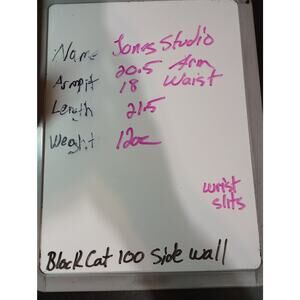 Name Jones Studio
Armpit 20.5 Arm
18 Waist
Length 21.5
Weight 12oz
wrist
slits
Black Cat 100 Side Wall